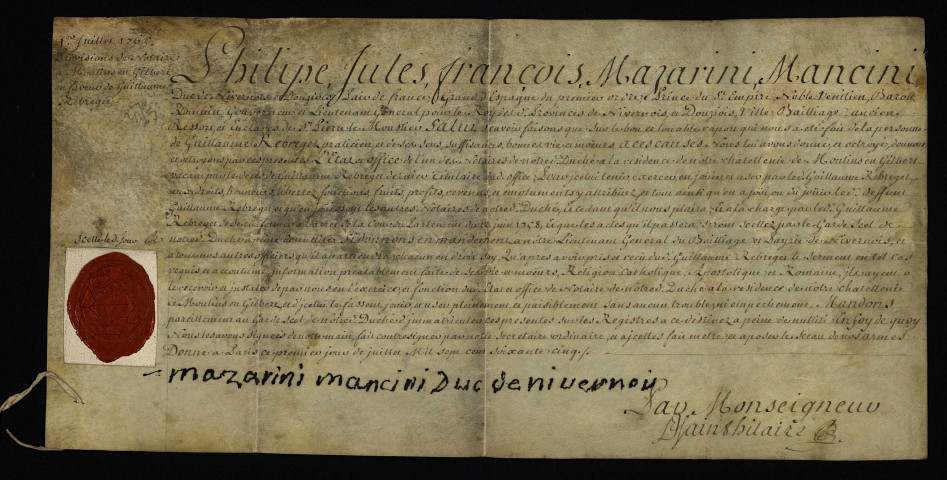 1er Juillet 1765
Provisions de Notaire
a Moulins en Gilbert
en faveur de Guillaume
Rebreget
Philipe, Jules, françois, Mazarini, Mancini
Duc de Nivernois et Donziois, Pair de france, Grand d'Espagne du premier ordre, Prince du St Empire, Noble Venitien, Baron
Romain, Gouverneur et Lieutenant General pour le Roy desd. Provinces de Nivernois, et Donziois, Ville, Bailliage, ancien
Ressort et Enclaves de St Pierre le Moustier Salut, scavoir faisons que sur le bon et louable raport qui nous a eté fait de la personne
de Guillaume Rebreget praticien et de ses sens, suffisance, bonne vie, et moeurs a ces causes Nous luy avons donné, et octroyé, donnons
et octroyons par ces presentes L'Etat et office de l'un des Notaires de notred. Duché a la residence de notre chatellenie de Moulins en Gilbert
vacant par le decès de Guillaume Rebreget dernier titulaire dud. office, Pour icelui tenir exercer, en jouir et user par led. Guillaume Rebreget
aux droits, honneurs, libertez, fonctions, fruits, profits, revenus, et emolumens y attribuez et tout ainsi qu'en a joui, ou dû jouir led. deffunt
Guillaume Rebreget et qu'en jouissent les autres Notaires de notred. Duché, et ce tant qu'il nous plaira, et a la charge par led. Guillaume
Rebreget de se conformer a l'arret de la Cour de Parlement du juin 1758, et que les actes qu'il passera seront scellez par le Garde Scel de
notred. Duché a peine de nullité Sy donnons en mandement a notre Lieutenant General du Bailliage et Pairie de Nivernois, et
a tous nos autres officiers qu'il apartiendra, et a chacun en droit soy, Qu'apres avoir pris et reçu dud. Guillaume Rebreget le Serment en tel cas
requis et accoutumé, information préalablement faite de ses vie et moeurs, Religion Catholique, Apostolique, et Romaine, Ils ayent a
le recevoir et instaler de par nous en l'exercice et fonction dud. Etat et office de Notaire de notred. Duché a la residence de notre chatellenie
de Moulins en Gilbert, et d'jcelui le fassent jouir et user pleinement et paisiblement sans aucun trouble ni empechement. Mandons
pareillement au Garde Scel de notred. Duché d'jmmatriculer ces presentes sur les Registres a ce destinez a peine de nullité En foy de quoy
Nous les avons signées de notre main, fait contresigner par notre Secretaire ordinaire, et a jcelles fait mettre et aposer le Sceau de nos armes
Donné a Paris ce premier jour de juillet Mil sept cent soixante cinq
Scellé led. jour
mazarini mancini Duc de nivernois
Par Monseigneur
Dsainthilaire